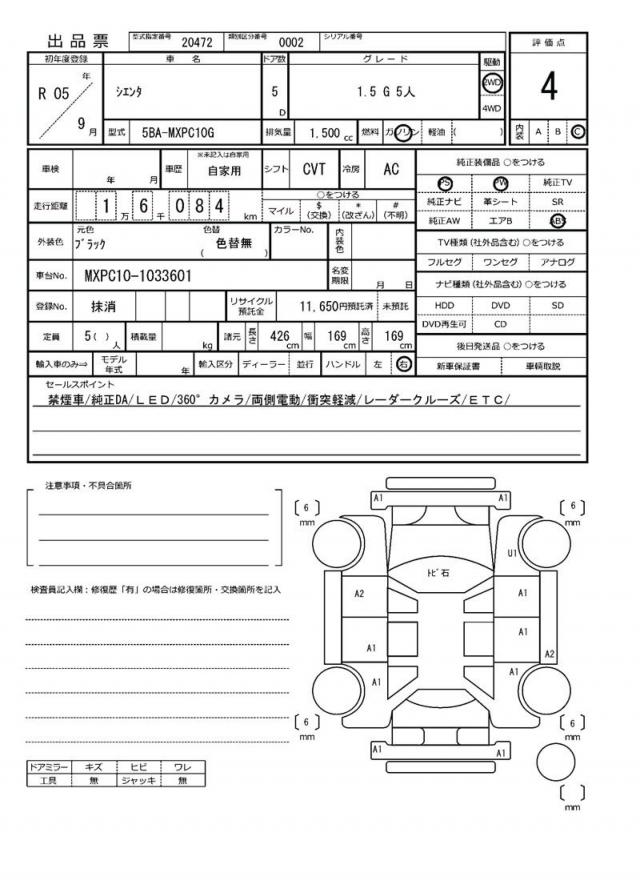 出品票 型式指定番号 20472 類別区分番号 0002 シリアル番号
評価点
初年度登録 車名 ドア数 グレード 駆動
R 05 年 9 月 シエンタ 5 D 1.5 G 5人 2WD 4WD
4
型式 5BA-MXPC10G 排気量 1,500 cc 燃料 ガソリン 軽油 ( )
内装 A B C
車検 年 月 車歴 ※未記入は自家用 自家用 シフト CVT 冷房 AC
純正装備品 ○をつける
PS PW 純正TV
純正ナビ 革シート SR
純正AW エアB ABS
走行距離 1 万 6 千 0 8 4 km
○をつける
マイル $ (交換) * (改ざん) # (不明)
外装色 元色 ブラック 色替 ( 色替無 ) カラーNo. 内装色
TV種類(社外品含む)○をつける
フルセグ ワンセグ アナログ
車台No. MXPC10-1033601 名変期限 月 日
ナビ種類(社外品含む)○をつける
HDD DVD SD
DVD再生可 CD
登録No. 抹消 リサイクル預託金 11,650円預託済 未預託
定員 5( )人 積載量 kg 諸元 長さ 426 cm 幅 169 cm 高さ 169 cm
後日発送品 ○をつける
新車保証書 車輌取説
輸入車のみ⇒ モデル年式 年 輸入区分 ディーラー 並行 ハンドル 左 右
セールスポイント
禁煙車/純正DA/LED/360°カメラ/両側電動/衝突軽減/レーダークルーズ/ETC/
注意事項・不具合箇所
検査員記入欄:修復歴「有」の場合は修復箇所・交換箇所を記入
A1 A1
6 mm
6 mm
U1
トビ石
A2 A1
A1 A1
A2
A1 A1
6 mm
6 mm
A1 A1
mm
ドアミラー キズ ヒビ ワレ
工具 無 ジャッキ 無